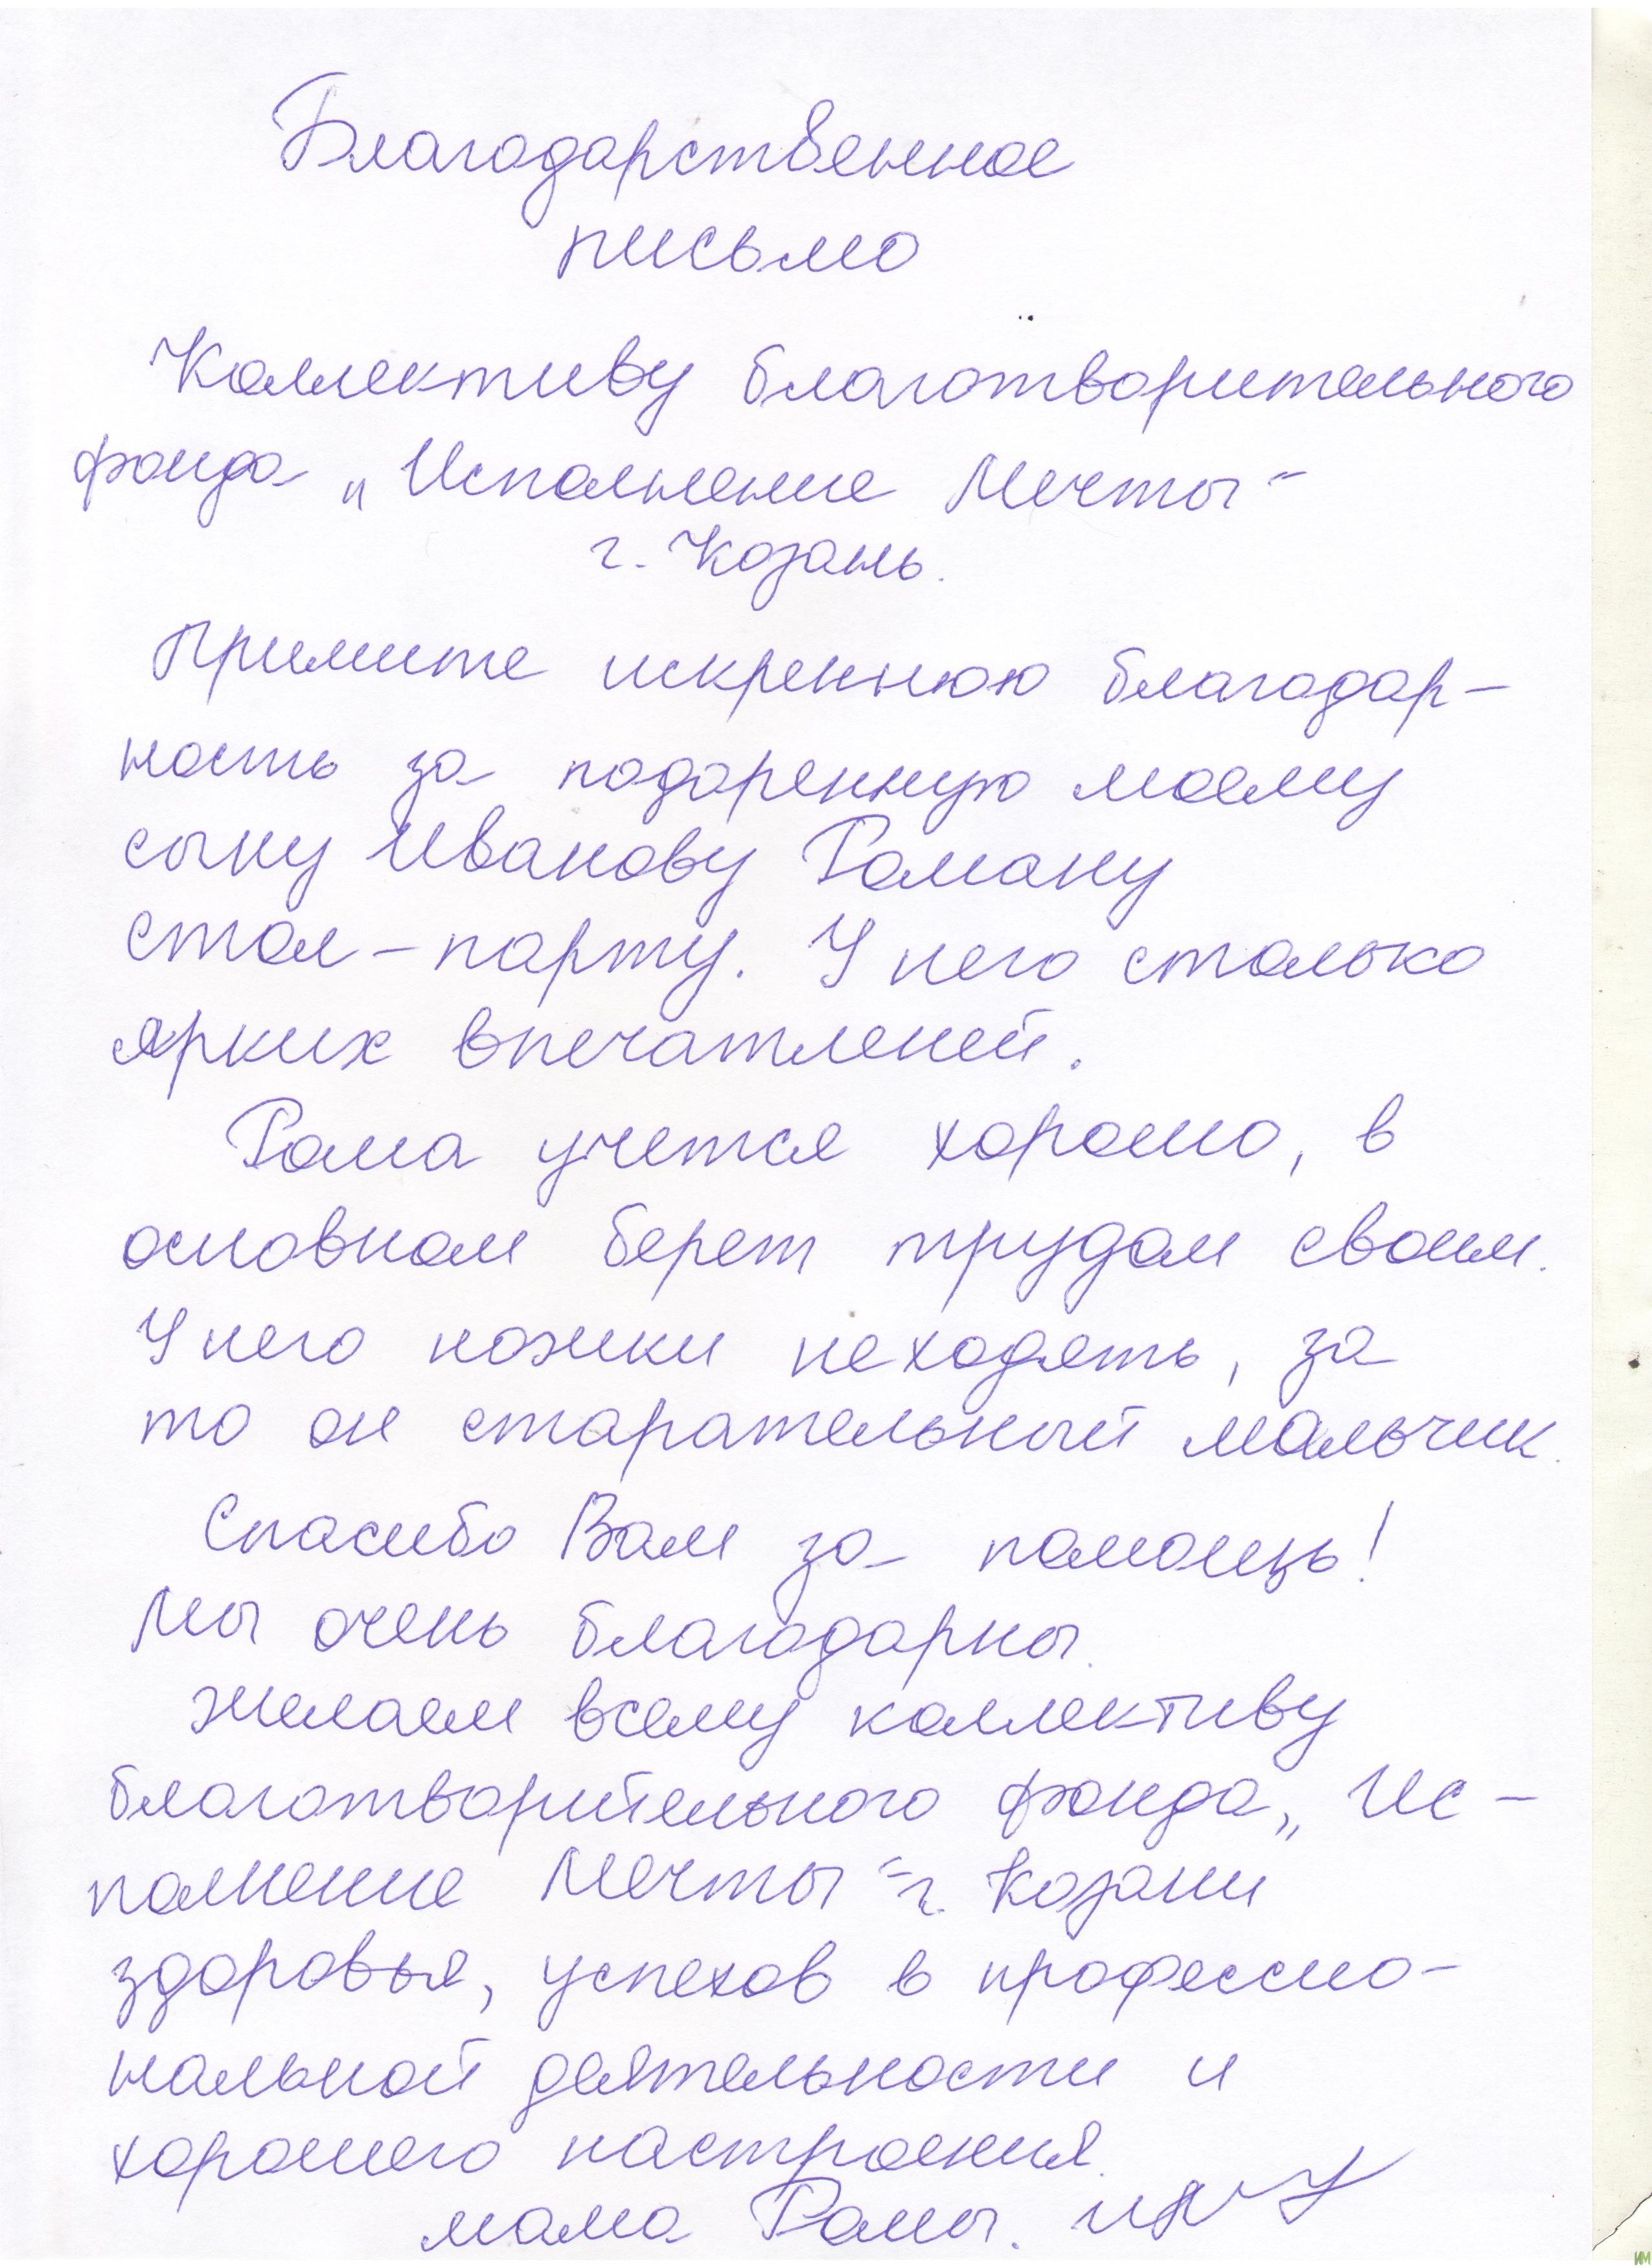 Благодарственное
письмо
Коллективу благотворительного
фонда „Исполнение Мечты“
г. Козань.
Примите искреннюю благодар-
ность за подаренную моему
сыну Иванову Роману
стол-парту. У него столько
ярких впечатлений.
Рома учется хорошо, в
основном берет трудом своим.
У него ножки неходять, за
то он старательный мальчик.
Спасибо Вам за помощь!
Мы очень благодарны.
Желаем всему коллективу
благотворительного фонда „Ис-
полнение Мечты“ г. Козани
здоровья, успехов в профессио-
нальной деятельности и
хорошего настроения.
мама Ромы.